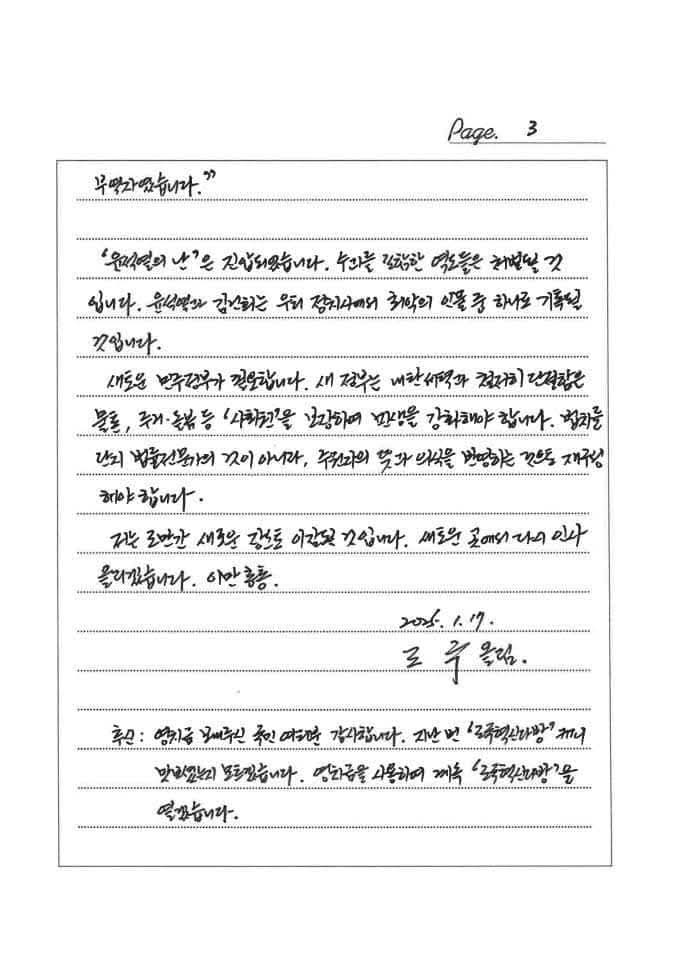 Page. 3
무력자였습니다.”
‘윤석열의 난’은 진압되었습니다. 수괴를 포함한 역도들은 처벌될 것
입니다. 윤석열과 김건희는 우리 정치사에서 최악의 인물 중 하나로 기록될
것입니다.
새로운 민주정부가 필요합니다. 새 정부는 내란세력과 철저히 단절함은
물론, 주거·돌봄 등 ‘사회권’을 보장하여 민생을 강화해야 합니다. 법치를
단지 법률전문가의 것이 아니라, 주권자의 뜻과 의식을 반영하는 것으로 재구성
해야 합니다.
저는 조만간 새로운 장소로 이감될 것입니다. 새로운 곳에서 다시 인사
올리겠습니다. 이만 총총.
2025. 1. 17.
조 국 올림.
추신: 영치금 보내주신 국민 여러분 감사합니다. 지난 번 ‘조국혁신다방’ 커피
맛있었는지 모르겠습니다. 영치금을 사용하여 계속 ‘조국혁신다방’을
열겠습니다.